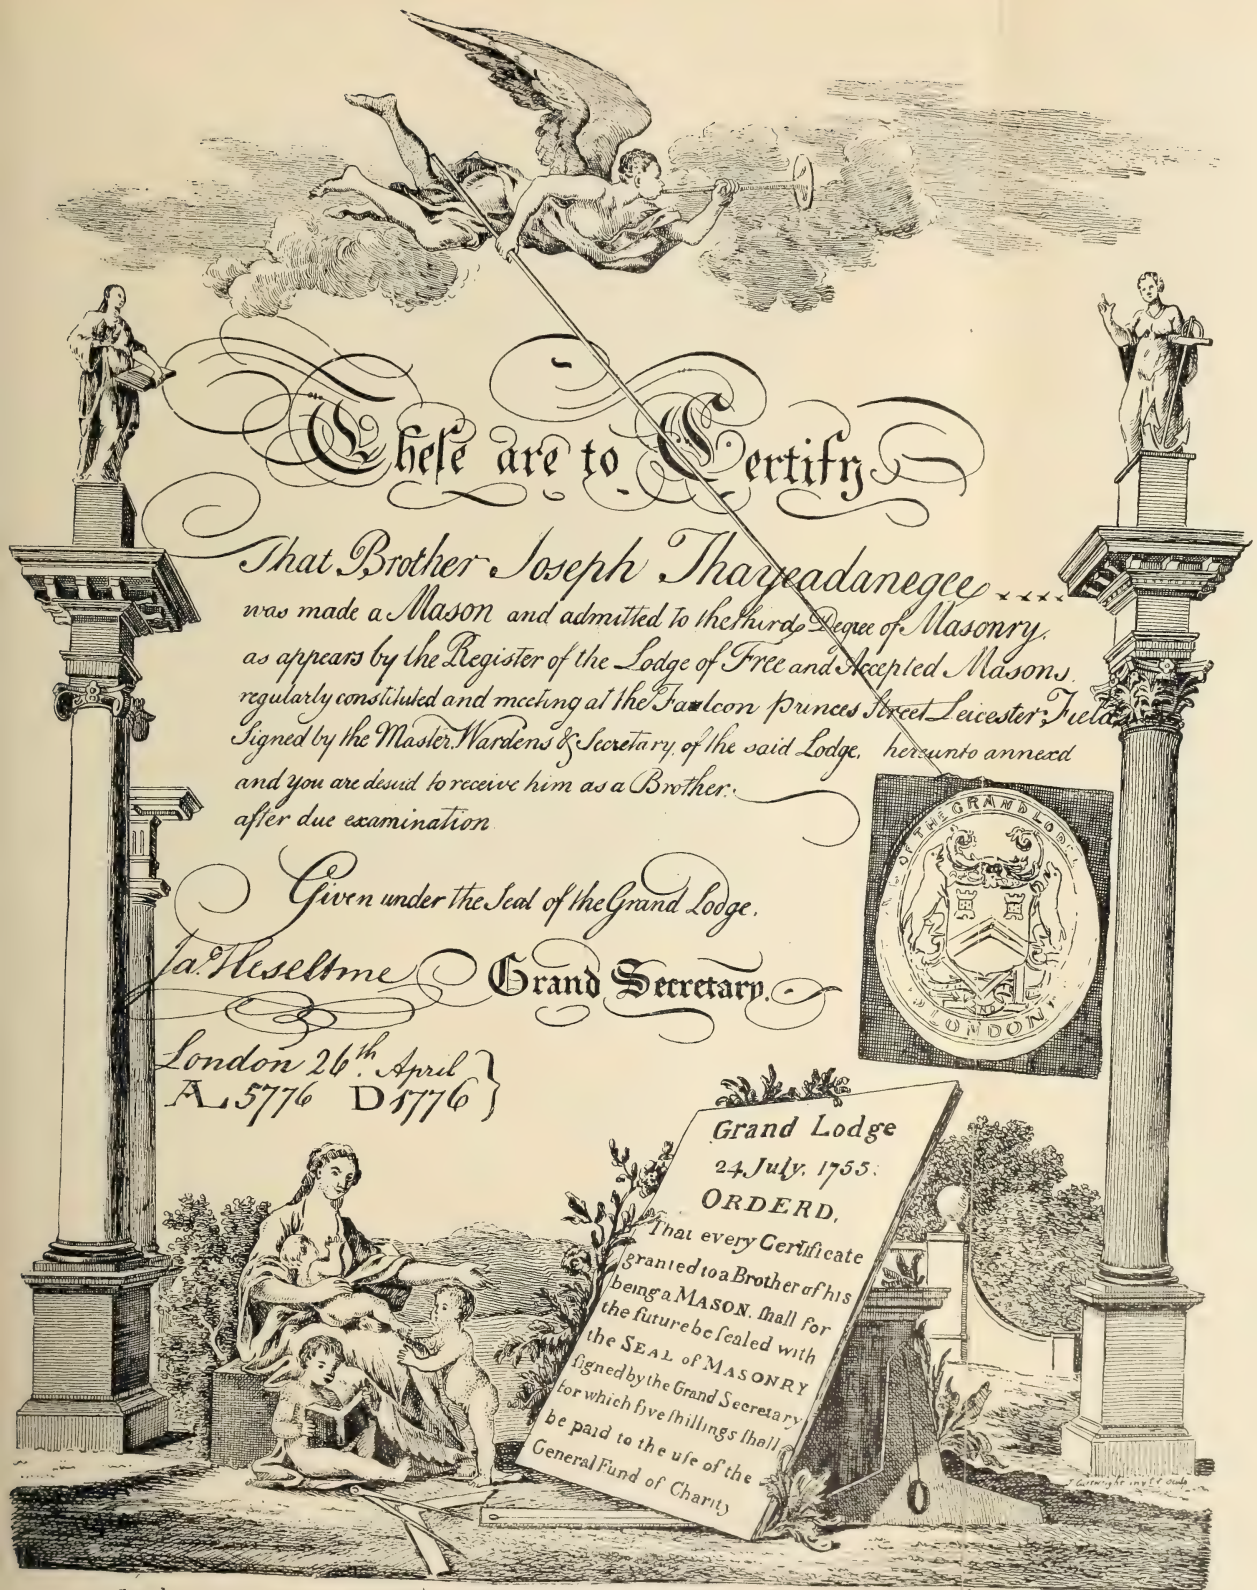 Theſe are to Certify
That Brother Joseph Thayeadanegee xxxx
was made a Mason and admitted to the third Degree of Masonry,
as appears by the Register of the Lodge of Free and Accepted Masons.
regularly constituted and meeting at the Faulcon Princes Street Leicester Field
Signed by the Master, Wardens & Secretary, of the said Lodge, hereunto annexd
and you are desird to receive him as a Brother.
after due examination
Given under the Seal of the Grand Lodge.
Ja.s Heseltine Grand Secretary.
London 26th. April
A L 5776 D 1776
OF THE GRAND LODGE
LONDON
Grand Lodge
24 July. 1755.
ORDERD,
That every Certificate
granted to a Brother of his
being a MASON. ſhall for
the future be ſealed with
the SEAL of MASONRY
ſigned by the Grand Secretary
for which five ſhillings ſhall
be paid to the uſe of the
General Fund of Charity